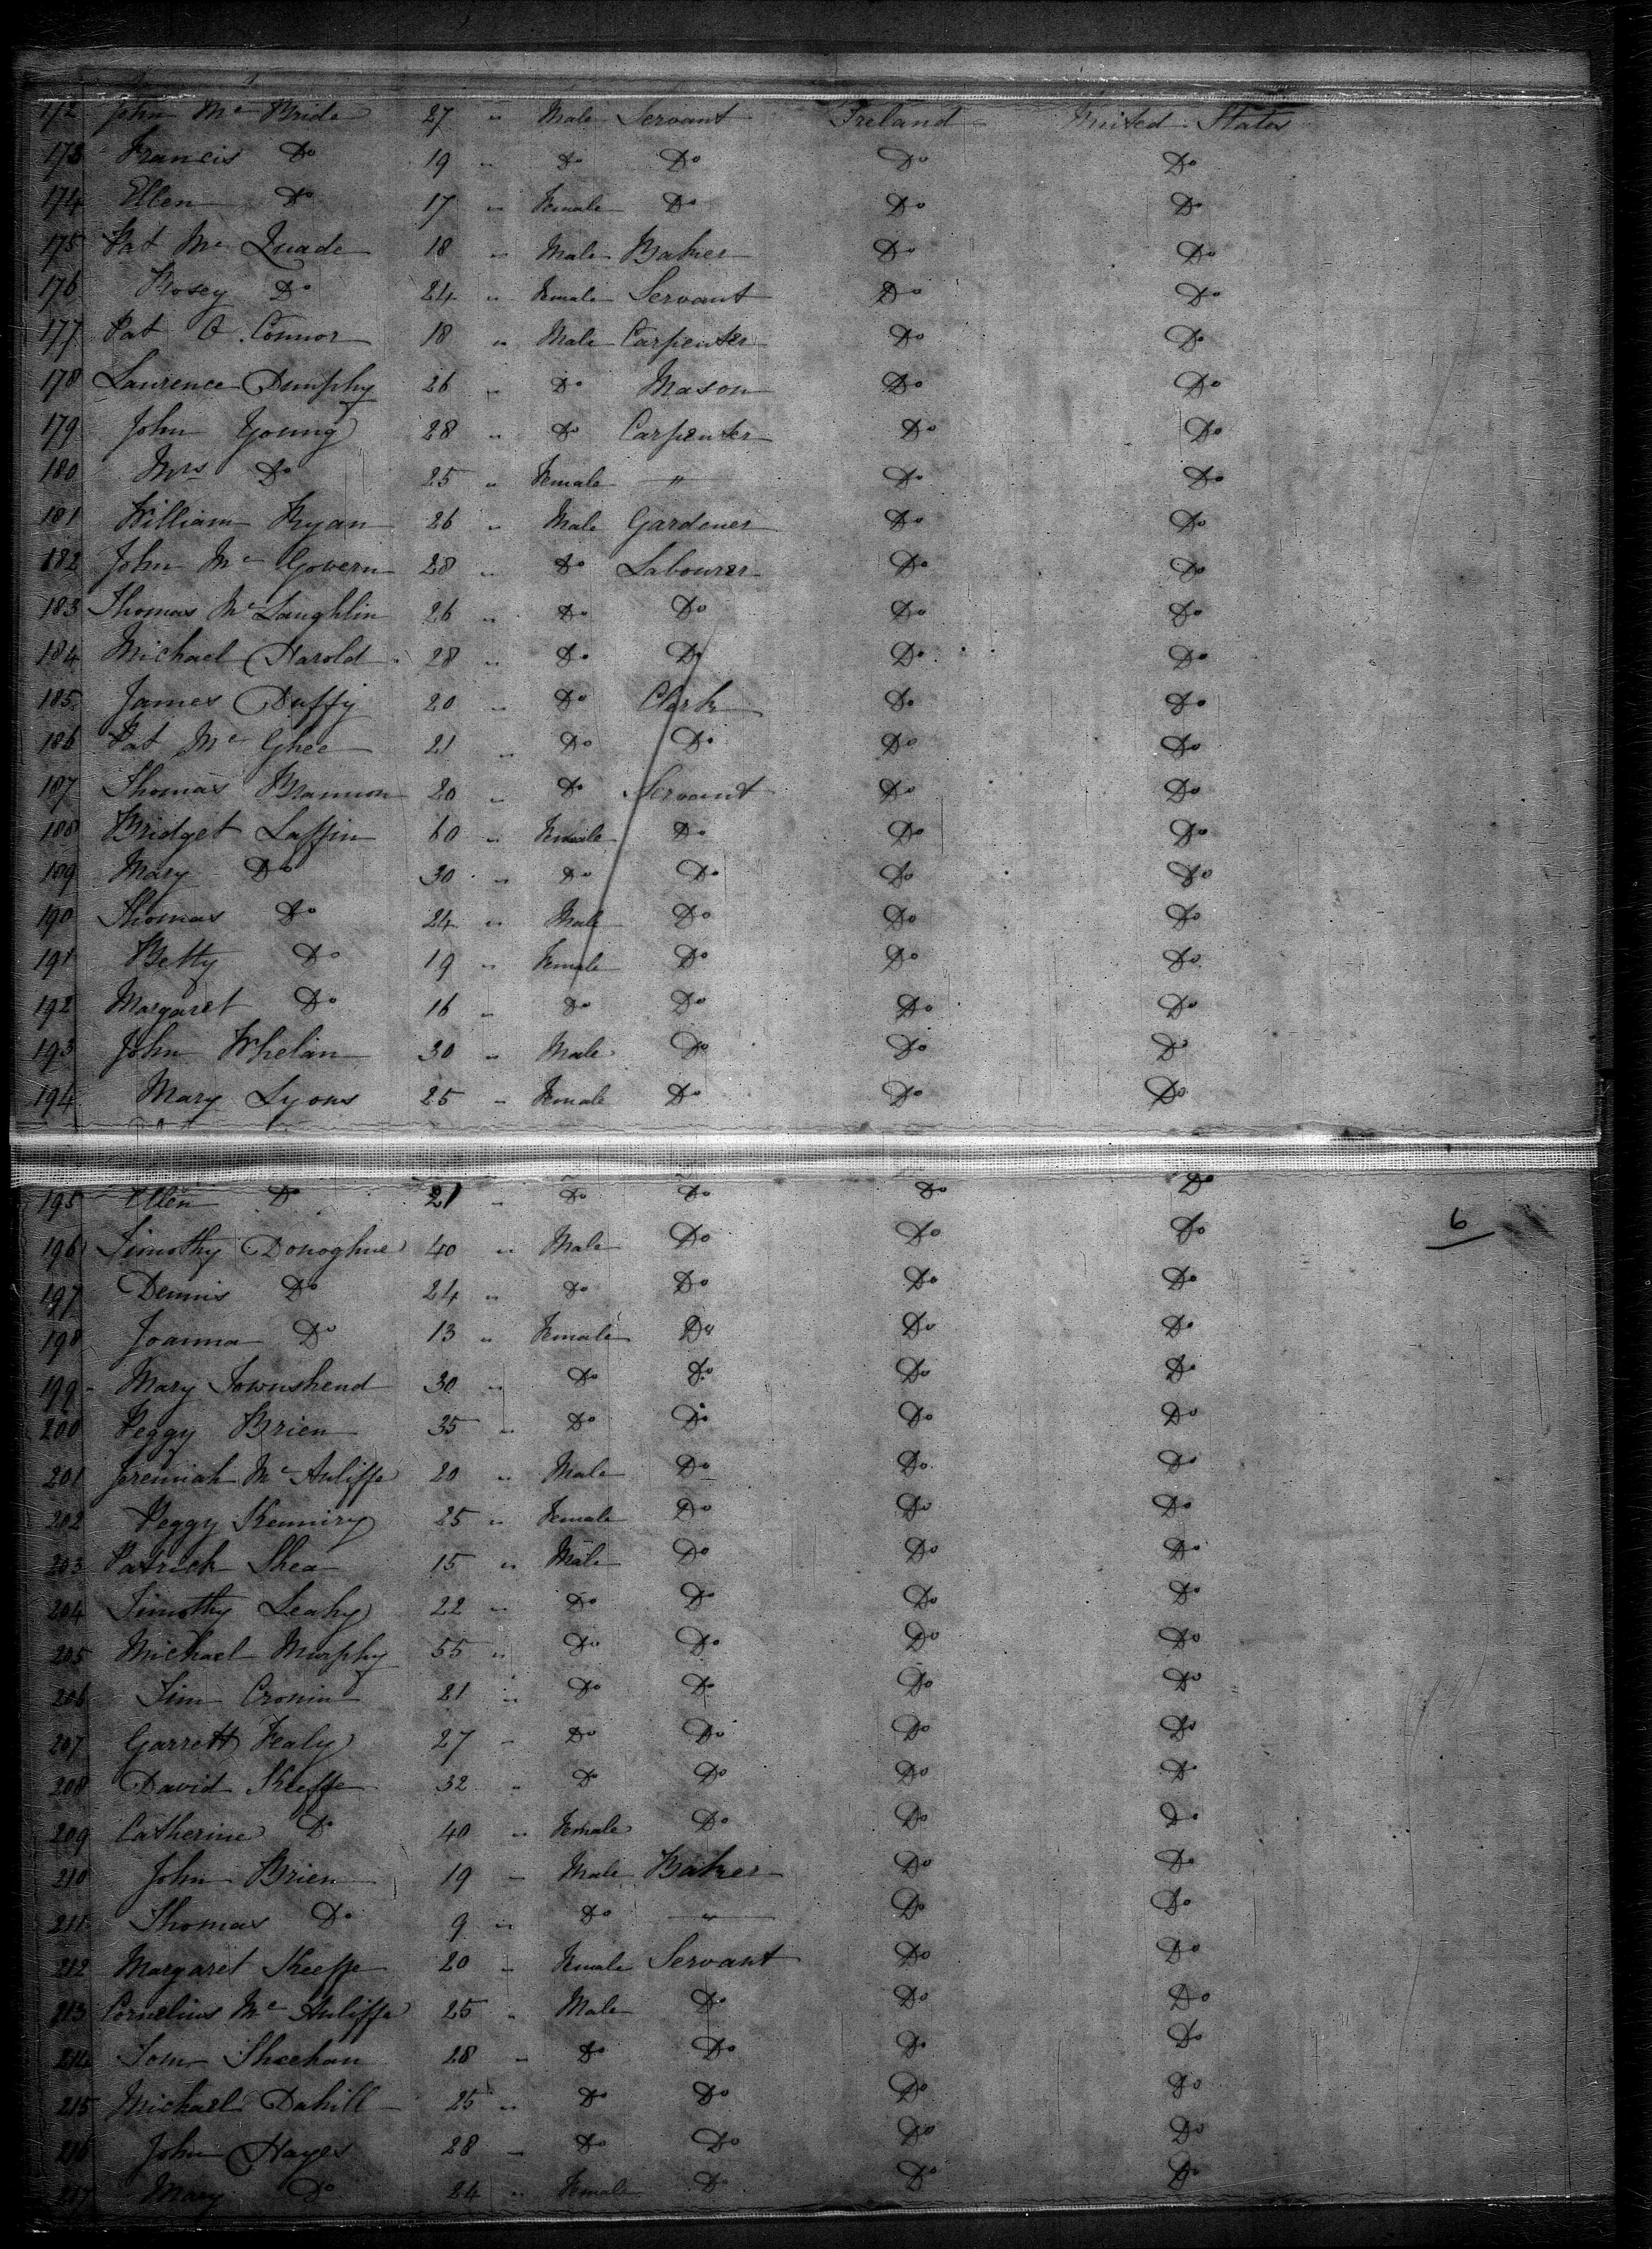 172 John Mc Bride 27 " Male Servant Ireland United States
173 Francis Do 19 " Do Do Do Do
174 Ellen Do 17 " Female Do Do Do
175 Pat Mc Quade 18 " Male Baker Do Do
176 Rosey Do 24 " Female Servant Do Do
177 Pat O. Connor 18 " Male Carpenter Do Do
178 Laurence Dunphy 26 " Do Mason Do Do
179 John Young 28 " Do Carpenter Do Do
180 Mrs Do 25 " Female " Do Do
181 William Ryan 26 " Male Gardener Do Do
182 John Mc Govern 28 " Do Labourer Do Do
183 Thomas Mc Laughlin 26 " Do Do Do Do
184 Michael Harold 28 " Do Do Do Do
185 James Duffy 20 " Do Clerk Do Do
186 Pat Mc Ghee 21 " Do Do Do Do
187 Thomas Brannon 20 " Do Servant Do Do
188 Bridget Laffin 60 " Female Do Do Do
189 Mary Do 30 " Do Do Do Do
190 Thomas Do 24 " Male Do Do Do
191 Betty Do 19 " Female Do Do Do
192 Margaret Do 16 " Do Do Do Do
193 John Whelan 30 " Male Do Do Do
194 Mary Lyons 25 " Female Do Do Do
195 Ellen Do 21 " Do Do Do Do
6
196 Timothy Donoghue 40 " Male Do Do Do
197 Dennis Do 24 " Do Do Do Do
198 Joanna Do 13 " Female Do Do Do
199 Mary Townshend 30 " Do Do Do Do
200 Peggy Brien 35 " Do Do Do Do
201 Jeremiah Mc Auliffe 20 " Male Do Do Do
202 Peggy Kenniry 25 " Female Do Do Do
203 Patrick Shea 15 " Male Do Do Do
204 Timothy Leahy 22 " Do Do Do Do
205 Michael Murphy 55 " Do Do Do Do
206 Tim Cronin 21 " Do Do Do Do
207 Garrett Fealy 27 " Do Do Do Do
208 David Keeffe 32 " Do Do Do Do
209 Catherine Do 40 " Female Do Do Do
210 John Brien 19 " Male Baker Do Do
211 Thomas Do 9 " Do " Do Do
212 Margaret Keeffe 20 " Female Servant Do Do
213 Cornelius Mc Auliffe 25 " Male Do Do Do
214 Tom Sheehan 28 " Do Do Do Do
215 Michael Dahill 25 " Do Do Do Do
216 John Hayes 28 " Do Do Do Do
217 Mary Do 24 " Female Do Do Do